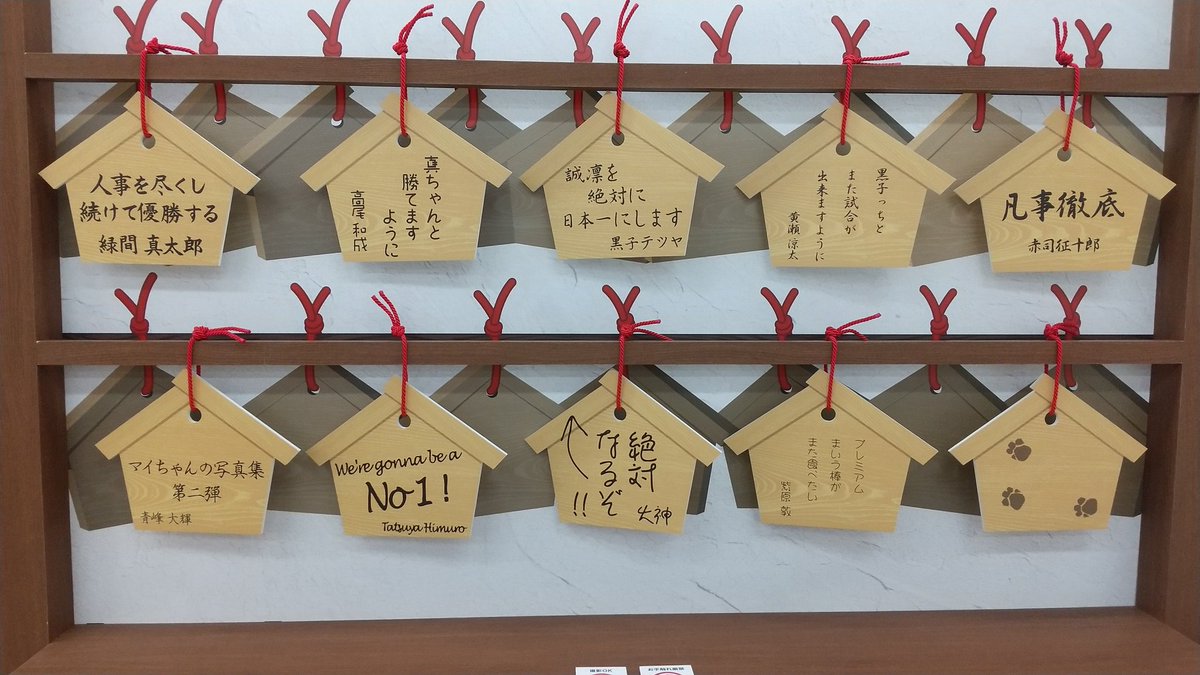 人事を尽くし
続けて優勝する
緑間 真太郎
真ちゃんと
勝てます
ように
高尾 和成
誠凛を
絶対に
日本一にします
黒子テツヤ
黒子っちと
また試合が
出来ますように
黄瀬 涼太
凡事徹底
赤司征十郎
マイちゃんの写真集
第二弾
青峰 大輝
We're gonna be a
No1!
Tatsuya Himuro
絶対
なるぞ
!!
火神
プレミアム
まいう棒が
また食べたい
紫原 敦
撮影OK
お手触れ厳禁